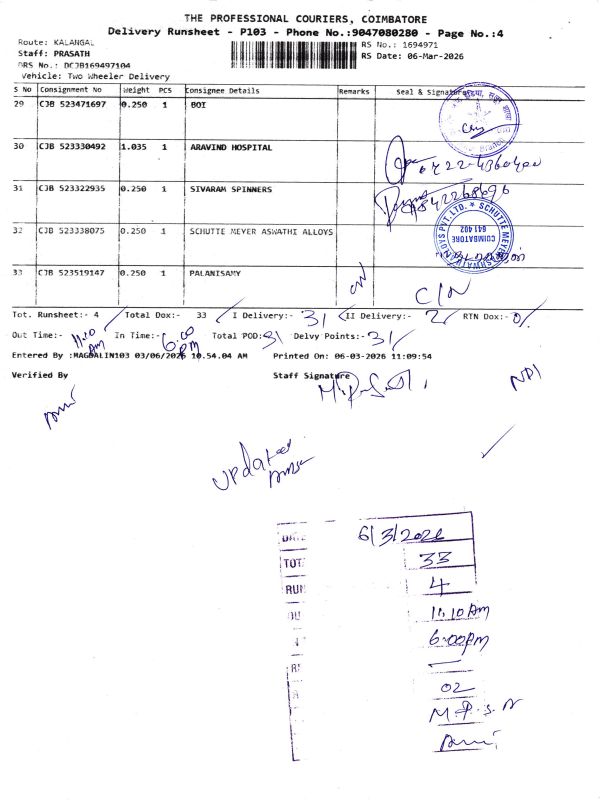 THE PROFESSIONAL COURIERS, COIMBATORE
Delivery Runsheet - P103 - Phone No.:9047080280 - Page No.:4
Route: KALANGAL
RS No.: 1694971
Staff: PRASATH
RS Date: 06-Mar-2026
DRS No.: DCJB169497104
Vehicle: Two Wheeler Delivery
S No Consignment No Weight PCS Consignee Details Remarks Seal & Signature
29 CJB 523471697 0.250 1 BOI
30 CJB 523330492 1.035 1 ARAVIND HOSPITAL
0422-4360400
31 CJB 523322935 0.250 1 SIVARAM SPINNERS
32 CJB 523338075 0.250 1 SCHUTTE MEYER ASWATHI ALLOYS
SCHUTTE MEYER ASWATHI ALLOYS PVT. LTD. * COIMBATORE 641 402
33 CJB 523519147 0.250 1 PALANISAMY
C/N
Tot. Runsheet:- 4 Total Dox:- 33 I Delivery:- 31 II Delivery:- 2 RTN Dox:- 0
Out Time:- 11.10 AM In Time:- 6.00 PM Total POD:31 Delvy Points:- 31
Entered By :MAGDALIN103 03/06/2026 10.54.04 AM Printed On: 06-03-2026 11:09:54
Verified By Staff Signature
NDI
updated
6/3/2026
TOT 33
RUN 4
11.10 AM
6.00 PM
02
M.P.S.N